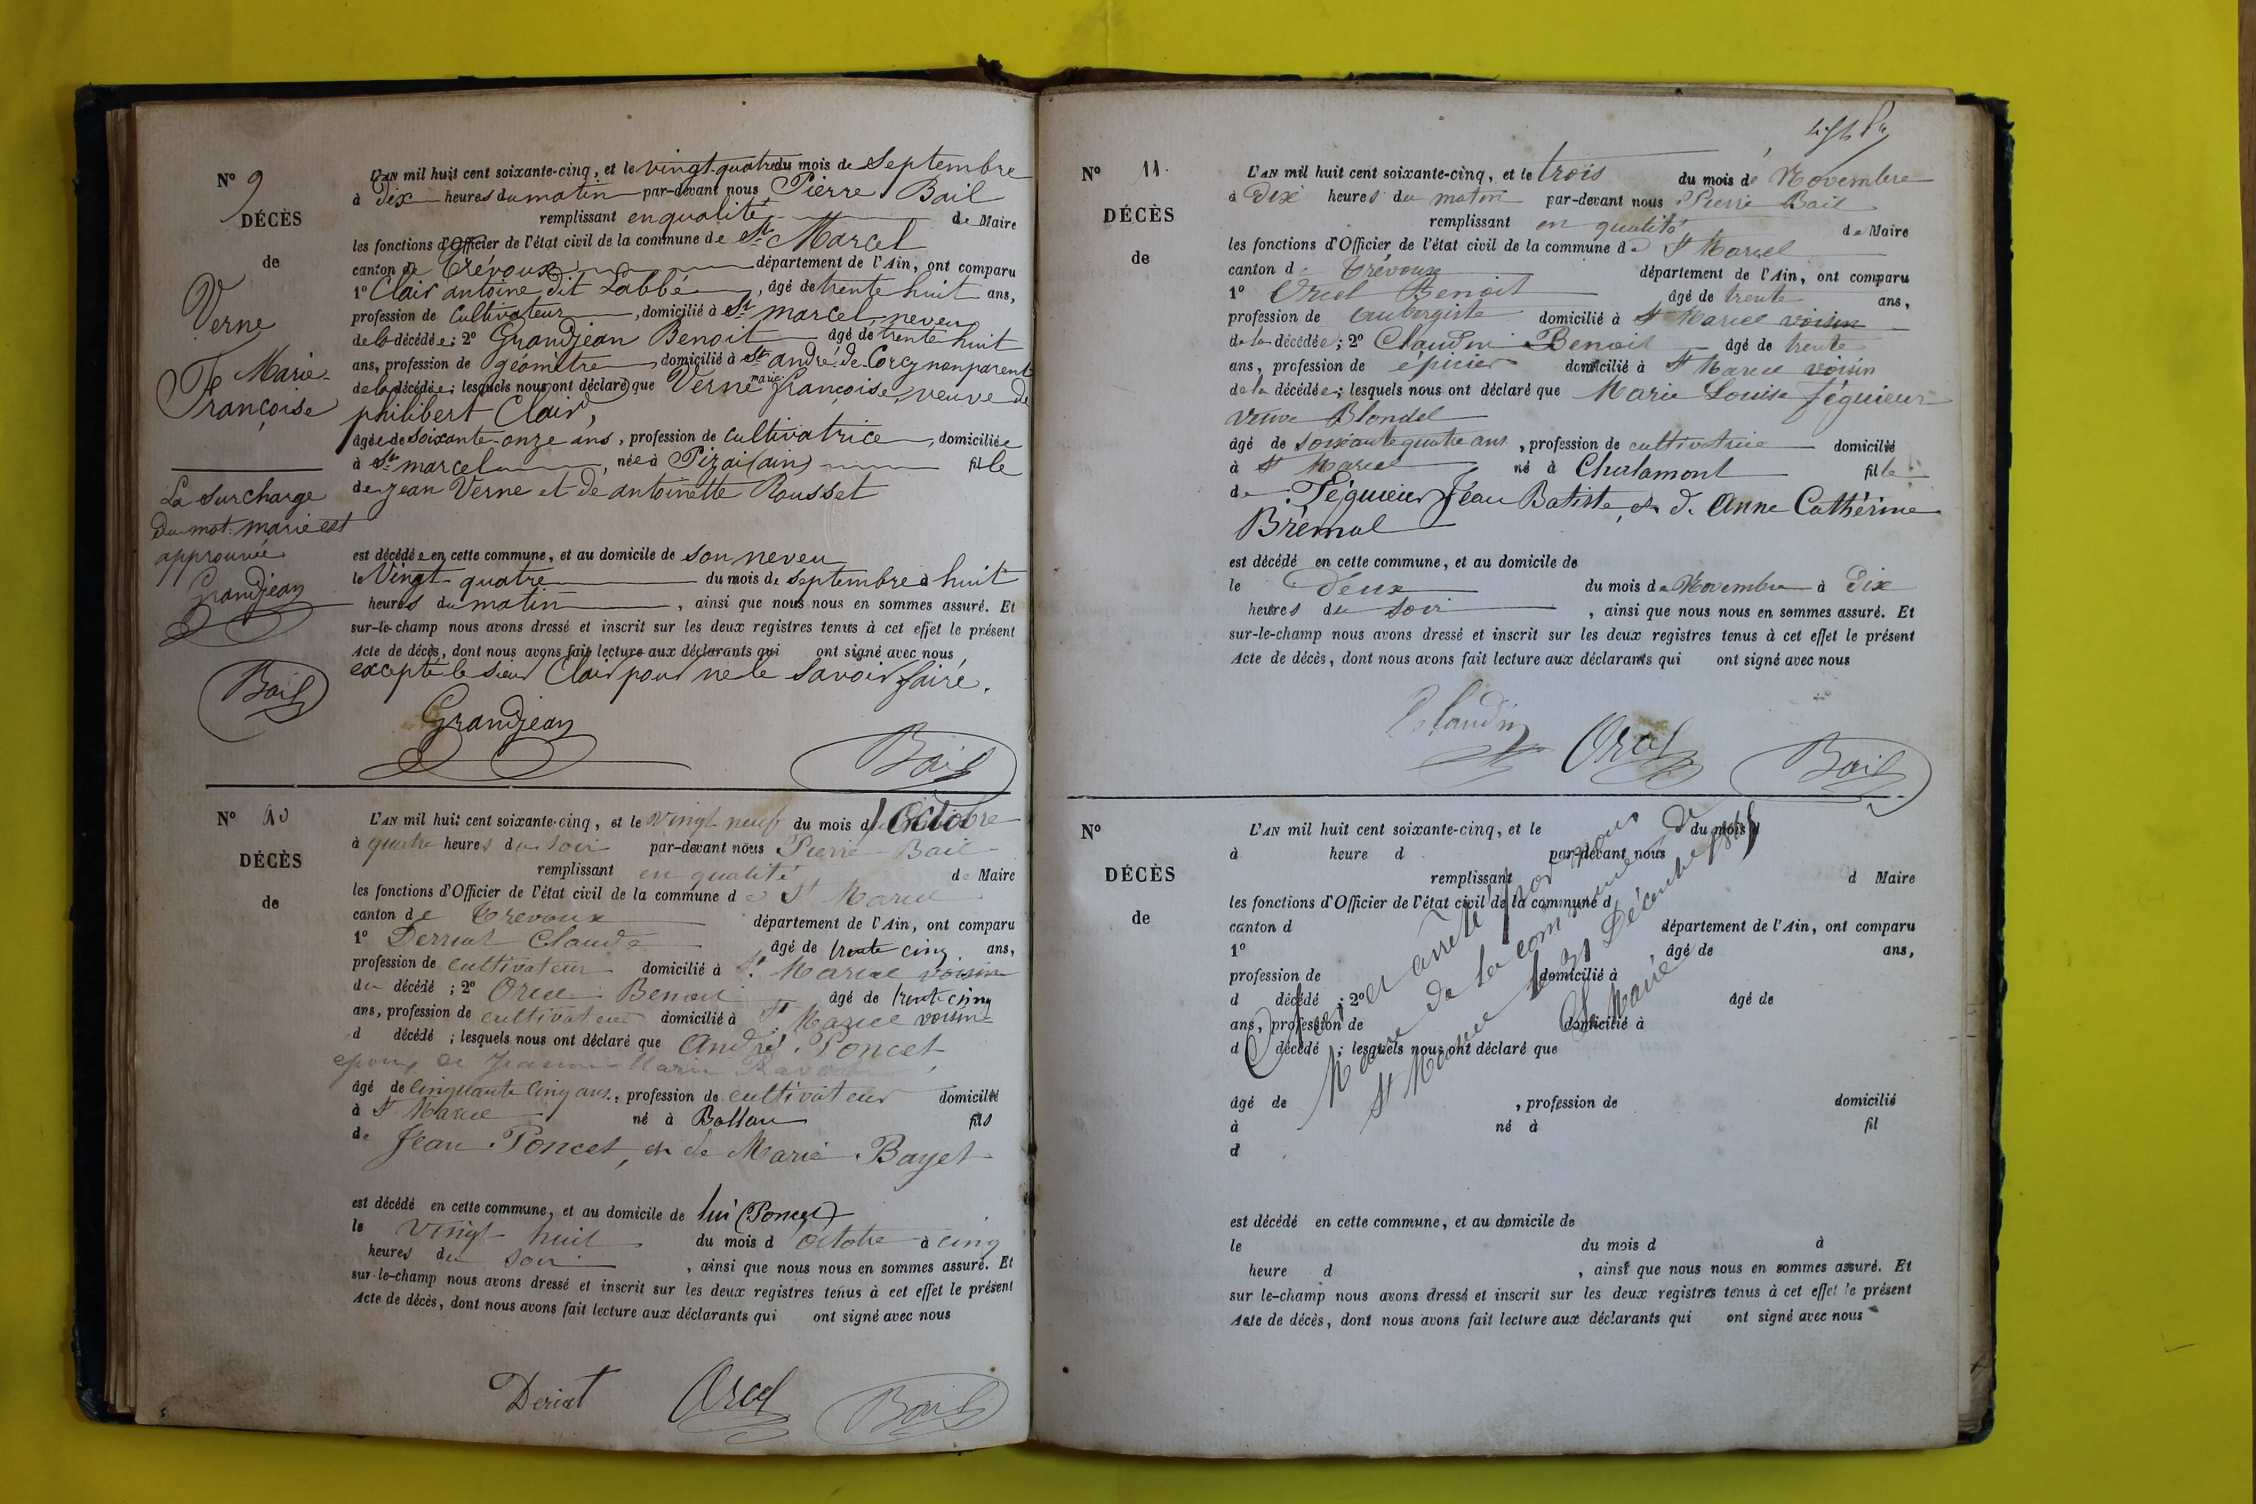 N° 9
DÉCÈS
de
Verne
Marie
Françoise
La surcharge
du mot marie est
approuvée
Grandjean
Bail
L'AN mil huit cent soixante-cinq, et le vingt-quatre du mois de Septembre
à Dix heures du matin par-devant nous Pierre Bail
remplissant en qualité de Maire
les fonctions d'Officier de l'état civil de la commune de St Marcel
canton de Trévoux département de l'Ain, ont comparu
1° Clair antoine dit Labbé, âgé de trente huit ans,
profession de Cultivateur, domicilié à St marcel, neveu
de la décédée; 2° Grandjean Benoit âgé de trente huit
ans, profession de géomètre domicilié à St andré-de-Corcy non parent
de la décédée; lesquels nous ont déclaré que Verne marie françoise, veuve de
philibert Clair,
âgée de soixante-onze ans, profession de cultivatrice, domiciliée
à St marcel, née à Pizai (ain) fille
de jean Verne et de antoinette Rousset
est décédée en cette commune, et au domicile de son neveu
le Vingt-quatre du mois de septembre à huit
heures du matin, ainsi que nous nous en sommes assuré. Et
sur-le-champ nous avons dressé et inscrit sur les deux registres tenus à cet effet le présent
Acte de décès, dont nous avons fait lecture aux déclarants qui ont signé avec nous
excepté le sieur Clair pour ne le savoir faire.
Grandjean
Bail
N° 10
DÉCÈS
de
L'AN mil huit cent soixante-cinq, et le vingt neuf du mois d'Octobre
à quatre heures du soir par-devant nous Pierre Bail
remplissant en qualité de Maire
les fonctions d'Officier de l'état civil de la commune de St Marcel
canton de Trevoux département de l'Ain, ont comparu
1° Derriat Claude âgé de trente cinq ans,
profession de cultivateur domicilié à St Marcel voisin
du décédé; 2° Orcel Benoit âgé de trente cinq
ans, profession de cultivateur domicilié à St Marcel voisin
d décédé; lesquels nous ont déclaré que André Poncet
epoux de Marie
âgé de cinquante cinq ans, profession de cultivateur domicilié
à St Marcel né à Ballan fils
de Jean Poncet, et de Marie Bayet
est décédé en cette commune, et au domicile de lui (Poncet)
le vingt huit du mois d octobre à cinq
heures du soir, ainsi que nous nous en sommes assuré. Et
sur-le-champ nous avons dressé et inscrit sur les deux registres tenus à cet effet le présent
Acte de décès, dont nous avons fait lecture aux déclarants qui ont signé avec nous
Deriat Orcel Bail
N° 11.
DÉCÈS
de
L'AN mil huit cent soixante-cinq, et le trois du mois de Novembre
à Dix heures du matin par-devant nous Pierre Bail
remplissant en qualité de Maire
les fonctions d'Officier de l'état civil de la commune de St Marcel
canton de Trévoux département de l'Ain, ont comparu
1° Orcel Benoit âgé de trente ans,
profession de aubergiste domicilié à St Marcel voisin
de la décédée; 2° Claudin Benoit âgé de trente
ans, profession de épicier domicilié à St Marcel voisin
de la décédée; lesquels nous ont déclaré que Marie Louise Féguieur
veuve Blondel
âgé de soixante quatre ans, profession de cultivatrice domicilié
à St Marcel né à Chalamont fille
de Féguieur Jean Batiste, et d. Anne Cathérine
Brémal
est décédé en cette commune, et au domicile de
le Deux du mois de Novembre à Dix
heures du soir, ainsi que nous nous en sommes assuré. Et
sur-le-champ nous avons dressé et inscrit sur les deux registres tenus à cet effet le présent
Acte de décès, dont nous avons fait lecture aux déclarants qui ont signé avec nous
Claudin Orcel Bail
N°
DÉCÈS
de
L'AN mil huit cent soixante-cinq, et le du mois d
à heure d par-devant nous
remplissant d Maire
les fonctions d'Officier de l'état civil de la commune d
canton d département de l'Ain, ont comparu
1° âgé de ans,
profession de domicilié à
d décédé; 2° âgé de
ans, profession de domicilié à
d décédé; lesquels nous ont déclaré que
âgé de, profession de domicilié
à né à fil
d
est décédé en cette commune, et au domicile de
le du mois d à
heure d, ainsi que nous nous en sommes assuré. Et
sur le-champ nous avons dressé et inscrit sur les deux registres tenus à cet effet le présent
Acte de décès, dont nous avons fait lecture aux déclarants qui ont signé avec nous
Clos et arrêté par nous
Maire de la commune de
St Marcel le 31 Décembre 1865
Le Maire